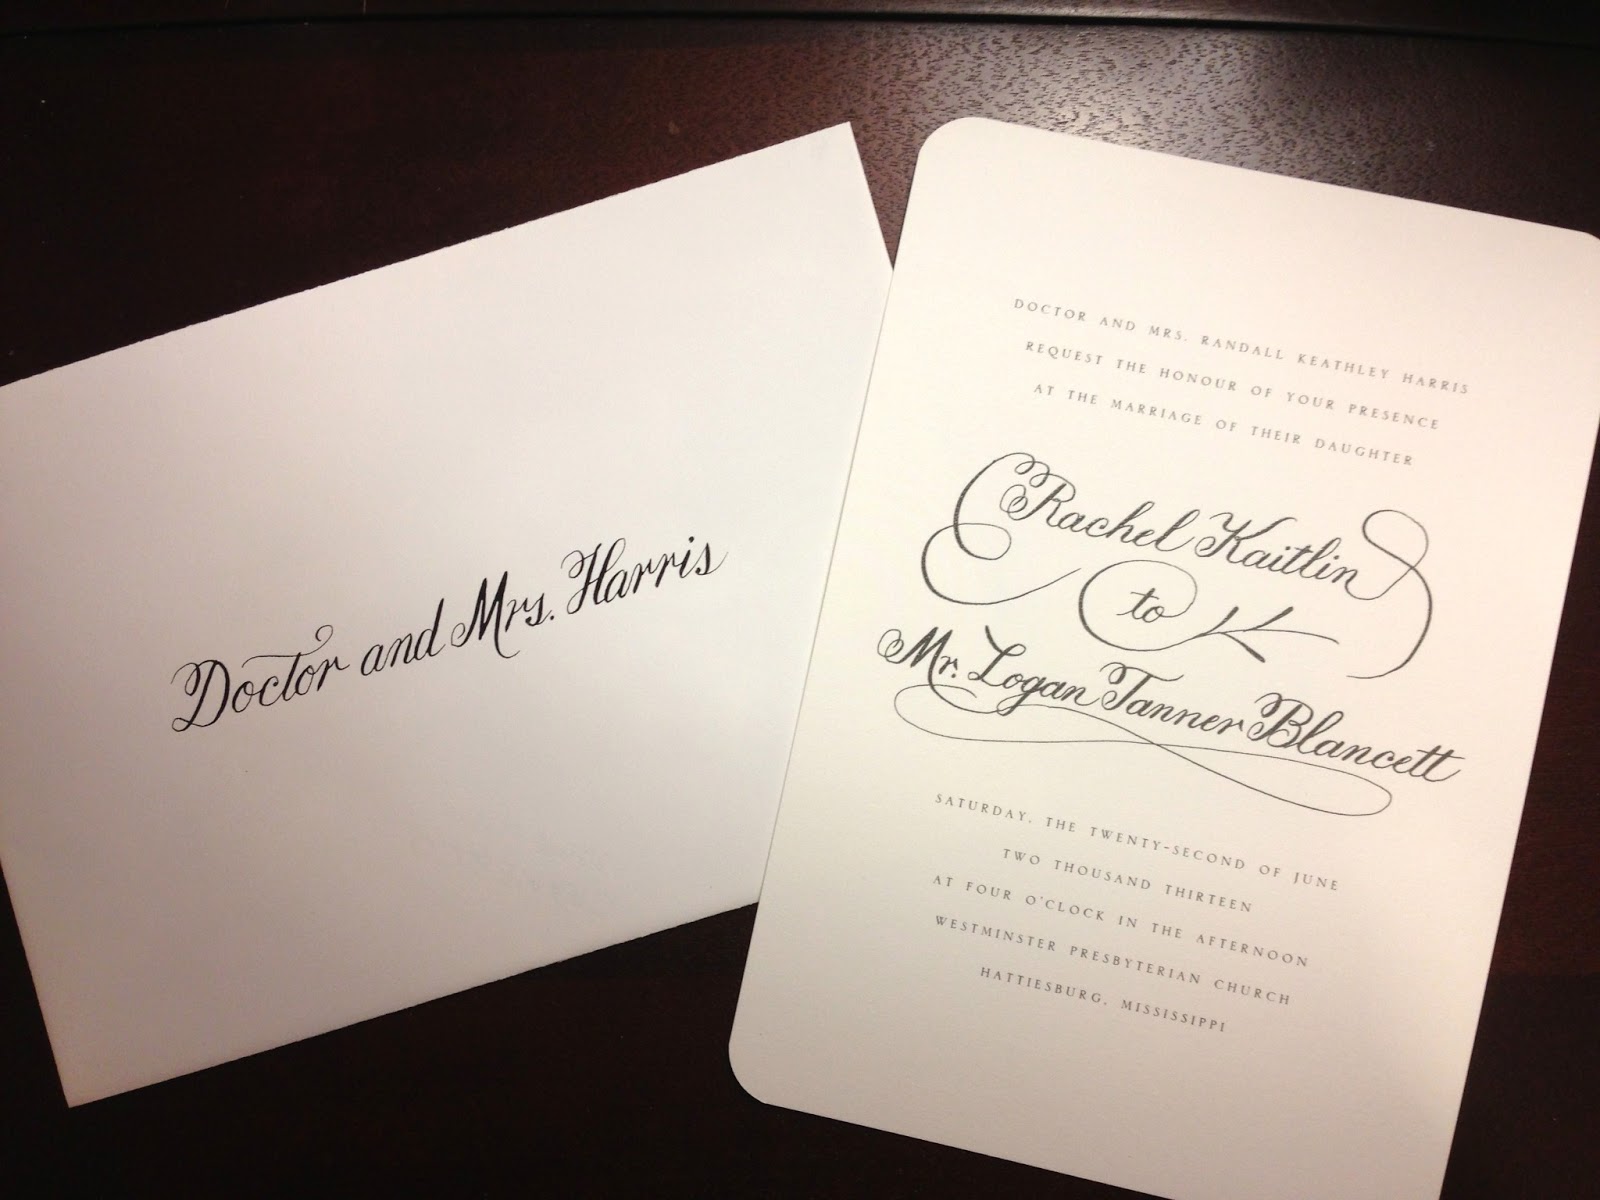 Doctor and Mrs. Harris
DOCTOR AND MRS. RANDALL KEATHLEY HARRIS
REQUEST THE HONOUR OF YOUR PRESENCE
AT THE MARRIAGE OF THEIR DAUGHTER
Rachel Kaitlin
to
Mr. Logan Tanner Blancett
SATURDAY, THE TWENTY-SECOND OF JUNE
TWO THOUSAND THIRTEEN
AT FOUR O'CLOCK IN THE AFTERNOON
WESTMINSTER PRESBYTERIAN CHURCH
HATTIESBURG, MISSISSIPPI